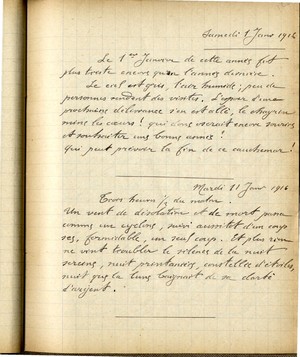 Samedi 1 Janv 1916
Le 1er Janvier de cette année fut
plus triste encore que l'année dernière.
Le ciel est gris, l'air humide ; peu de
personnes rendent des visites. L'espoir d'une
prochaine délivrance s'en est allé, le chagrin
mine les cœurs ! qui donc oserait encore sourire
et souhaiter une bonne année !
qui peut prévoir la fin de ce cauchemar !
Mardi 11 Janv 1916
Trois heures ½ du matin.
Un vent de dévastation et de mort, passe
comme un cyclone, suivi aussitôt d'un corps
formidable, un seul coup. Et plus rien
ne vint troubler le silence de la nuit
sereine, nuit printanière, constellée d'étoiles,
nuit que la lune baignait de sa clarté
d'argent.